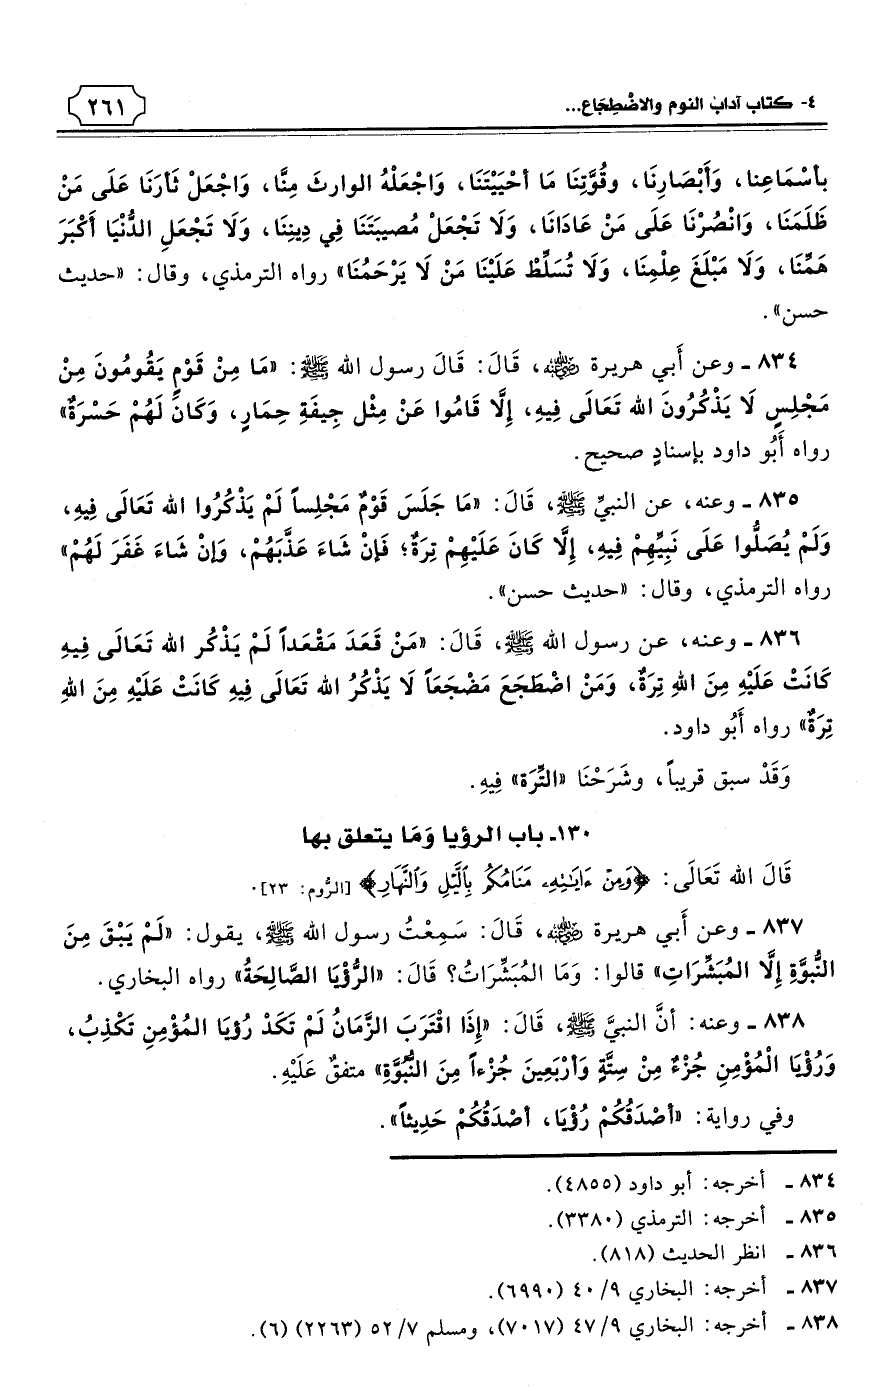 ٤- كتاب آداب النوم والاضْطِجَاع...
٢٦١
بأسْمَاعِنا، وَأَبْصَارِنَا، وقُوَّتِنَا مَا أحْيَيْتَنَا، وَاجْعَلْهُ الوارثَ مِنَّا، وَاجْعَلْ ثَأرَنَا عَلَى مَنْ
ظَلَمَنَا، وَانْصُرْنَا عَلَى مَنْ عَادَانَا، وَلَا تَجْعَلْ مُصيبَتَنَا فِي دِينِنَا، وَلَا تَجْعَلِ الدُّنْيَا أَكْبَرَ
هَمِّنَا، وَلَا مَبْلَغَ عِلْمِنَا، وَلَا تُسَلِّطْ عَلَيْنَا مَنْ لَا يَرْحَمُنَا» رواه الترمذي، وقال: «حديث
حسن».
٨٣٤ ـ وعن أَبي هريرة رضي الله عنه، قَالَ: قَالَ رسول الله ﷺ: «مَا مِنْ قَوْمٍ يَقُومُونَ مِنْ
مَجْلِسٍ لَا يَذْكُرُونَ الله تَعَالَى فِيهِ، إِلَّا قَامُوا عَنْ مِثْلِ جِيفَةِ حِمَارٍ، وَكَانَ لَهُمْ حَسْرَةٌ»
رواه أَبُو داود بإسنادٍ صحيح.
٨٣٥ ـ وعنه، عن النبيِّ ﷺ، قَالَ: «مَا جَلَسَ قَوْمٌ مَجْلِساً لَمْ يَذْكُرُوا الله تَعَالَى فِيهِ،
وَلَمْ يُصَلُّوا عَلَى نَبِيِّهِمْ فِيهِ، إِلَّا كَانَ عَلَيْهِمْ تِرَةٌ؛ فَإنْ شَاءَ عَذَّبَهُمْ، وَإنْ شَاءَ غَفَرَ لَهُمْ»
رواه الترمذي، وقال: «حديث حسن».
٨٣٦ ـ وعنه، عن رسول الله ﷺ، قَالَ: «مَنْ قَعَدَ مَقْعَداً لَمْ يَذْكُر الله تَعَالَى فِيهِ
كَانَتْ عَلَيْهِ مِنَ اللهِ تِرَةٌ، وَمَنْ اضْطَجَعَ مَضْجَعَاً لَا يَذْكُرُ الله تَعَالَى فِيهِ كَانَتْ عَلَيْهِ مِنَ اللهِ
تِرَةٌ» رواه أَبُو داود.
وَقَدْ سبق قريباً، وشَرَحْنَا «التِّرَة» فِيهِ.
١٣٠ـ باب الرؤيا وَمَا يتعلق بها
قَالَ الله تَعَالَى: ﴿وَمِنْ ءَايَٰتِهِۦ مَنَامُكُم بِٱلَّيْلِ وَٱلنَّهَارِ﴾ [الرُّوم: ٢٣].
٨٣٧ ـ وعن أَبي هريرة رضي الله عنه، قَالَ: سَمِعْتُ رسول الله ﷺ، يقول: «لَمْ يَبْقَ مِنَ
النُّبوَّةِ إِلَّا المُبَشِّرَاتِ» قالوا: وَمَا المُبَشِّرَاتُ؟ قَالَ: «الرُّؤْيَا الصَّالِحَةُ» رواه البخاري.
٨٣٨ ـ وعنه: أنَّ النبيَّ ﷺ، قَالَ: «إِذَا اقْتَرَبَ الزَّمَانُ لَمْ تَكَدْ رُؤيَا المُؤْمِنِ تَكْذِبُ،
وَرُؤْيَا الْمُؤْمِنِ جُزْءٌ مِنْ سِتَّةٍ وَأرْبَعِينَ جُزْءاً مِنَ النُّبُوَّةِ» متفقٌ عَلَيْهِ.
وفي رواية: «أصْدَقُكُمْ رُؤْيَا، أصْدَقُكُمْ حَدِيثاً».
٨٣٤ ـ أخرجه: أبو داود (٤٨٥٥).
٨٣٥ ـ أخرجه: الترمذي (٣٣٨٠).
٨٣٦ ـ انظر الحديث (٨١٨).
٨٣٧ ـ أخرجه: البخاري ٩/ ٤٠ (٦٩٩٠).
٨٣٨ ـ أخرجه: البخاري ٩/ ٤٧ (٧٠١٧)، ومسلم ٧/ ٥٢ (٢٢٦٣) (٦).